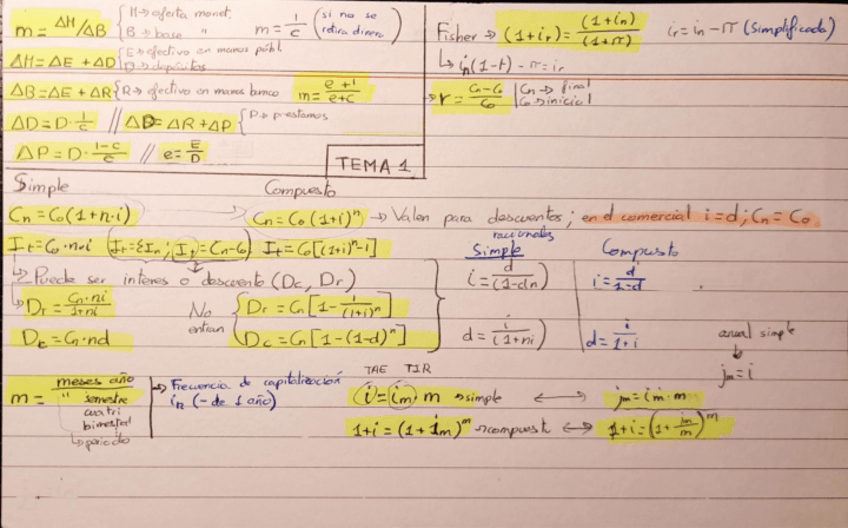 m = ΔM/ΔB { M → oferta monet. B → base " m = 1/c (si no se retira dinero)
ΔM = ΔE + ΔD { E → efectivo en manos públ. D → depósitos
ΔB = ΔE + ΔR { R → efectivo en manos banco m = e+1/e+c
ΔD = D · 1/c // ΔD = ΔR + ΔP { P → prestamos
ΔP = D · 1-c/c // e = E/D
TEMA 1
Fisher → (1+ir) = (1+in)/(1+π) ir = in - π (simplificada)
↳ in(1-t) - π = ir
→ r = Cn-Co/Co | Cn → final Co → inicial
Simple Compuesto
Cn = Co(1+n·i) → Cn = Co(1+i)^n → Valen para descuentos racionales; en d comercial i=d; Cn = Co
It = Co·n·i (It = ΣIn; It) = Cn-Co) It = Co[(1+i)^n - 1]
↳ Puede ser interes o descuento (Dc, Dr)
↳ Dr = Cn·ni/1+ni No entran { Dr = Cn[1 - 1/(1+i)^n]
Dc = Cn·nd Dc = Cn[1-(1-d)^n]
Simple Compuesto
i = d/(1-dn) i = d/1-d
d = i/(1+ni) d = i/1+i
anual simple
↓
jm = i
m = meses año/" semestre
cuatri
bimestral
↳ periodo
→ Frecuencia de capitalización
in (- de 1 año)
TAE TIR
i = im · m → simple ↔ jm = im · m
1+i = (1+im)^m → compuest ↔ 1+i = (1 + jm/m)^m